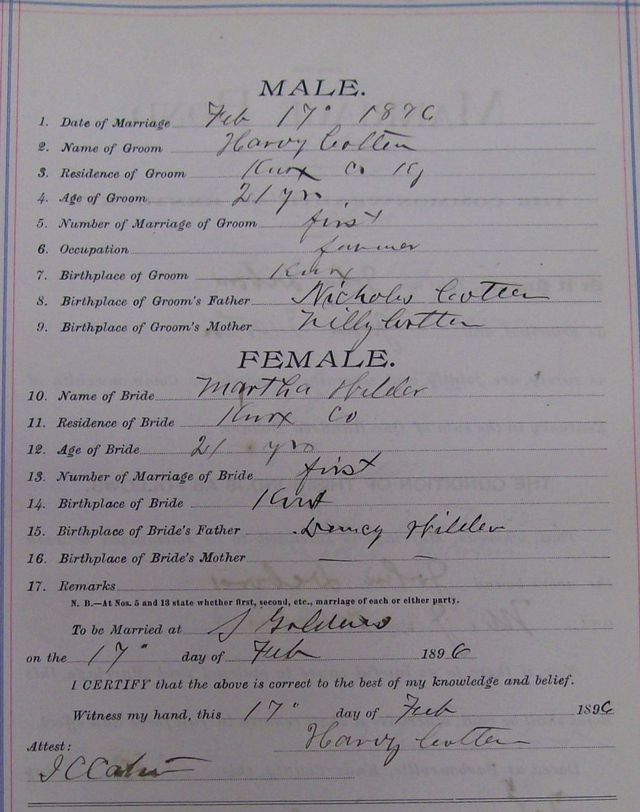 MALE.
1. Date of Marriage Feb 17" 1896
2. Name of Groom Harvy Cotten
3. Residence of Groom Knox Co Ky
4. Age of Groom 21 yrs
5. Number of Marriage of Groom first
6. Occupation farmer
7. Birthplace of Groom Knox
8. Birthplace of Groom's Father Nicholas Cotten
9. Birthplace of Groom's Mother Cotten
FEMALE.
10. Name of Bride Martha Hilder
11. Residence of Bride Knox Co
12. Age of Bride 21 yrs
13. Number of Marriage of Bride first
14. Birthplace of Bride Knox
15. Birthplace of Bride's Father Hilder
16. Birthplace of Bride's Mother
17. Remarks
N. B.—At Nos. 5 and 13 state whether first, second, etc., marriage of each or either party.
To be Married at S
on the 17" day of Feb 1896
I CERTIFY that the above is correct to the best of my knowledge and belief.
Witness my hand, this 17" day of Feb 1896
Harvy Cotten
Attest:
J C